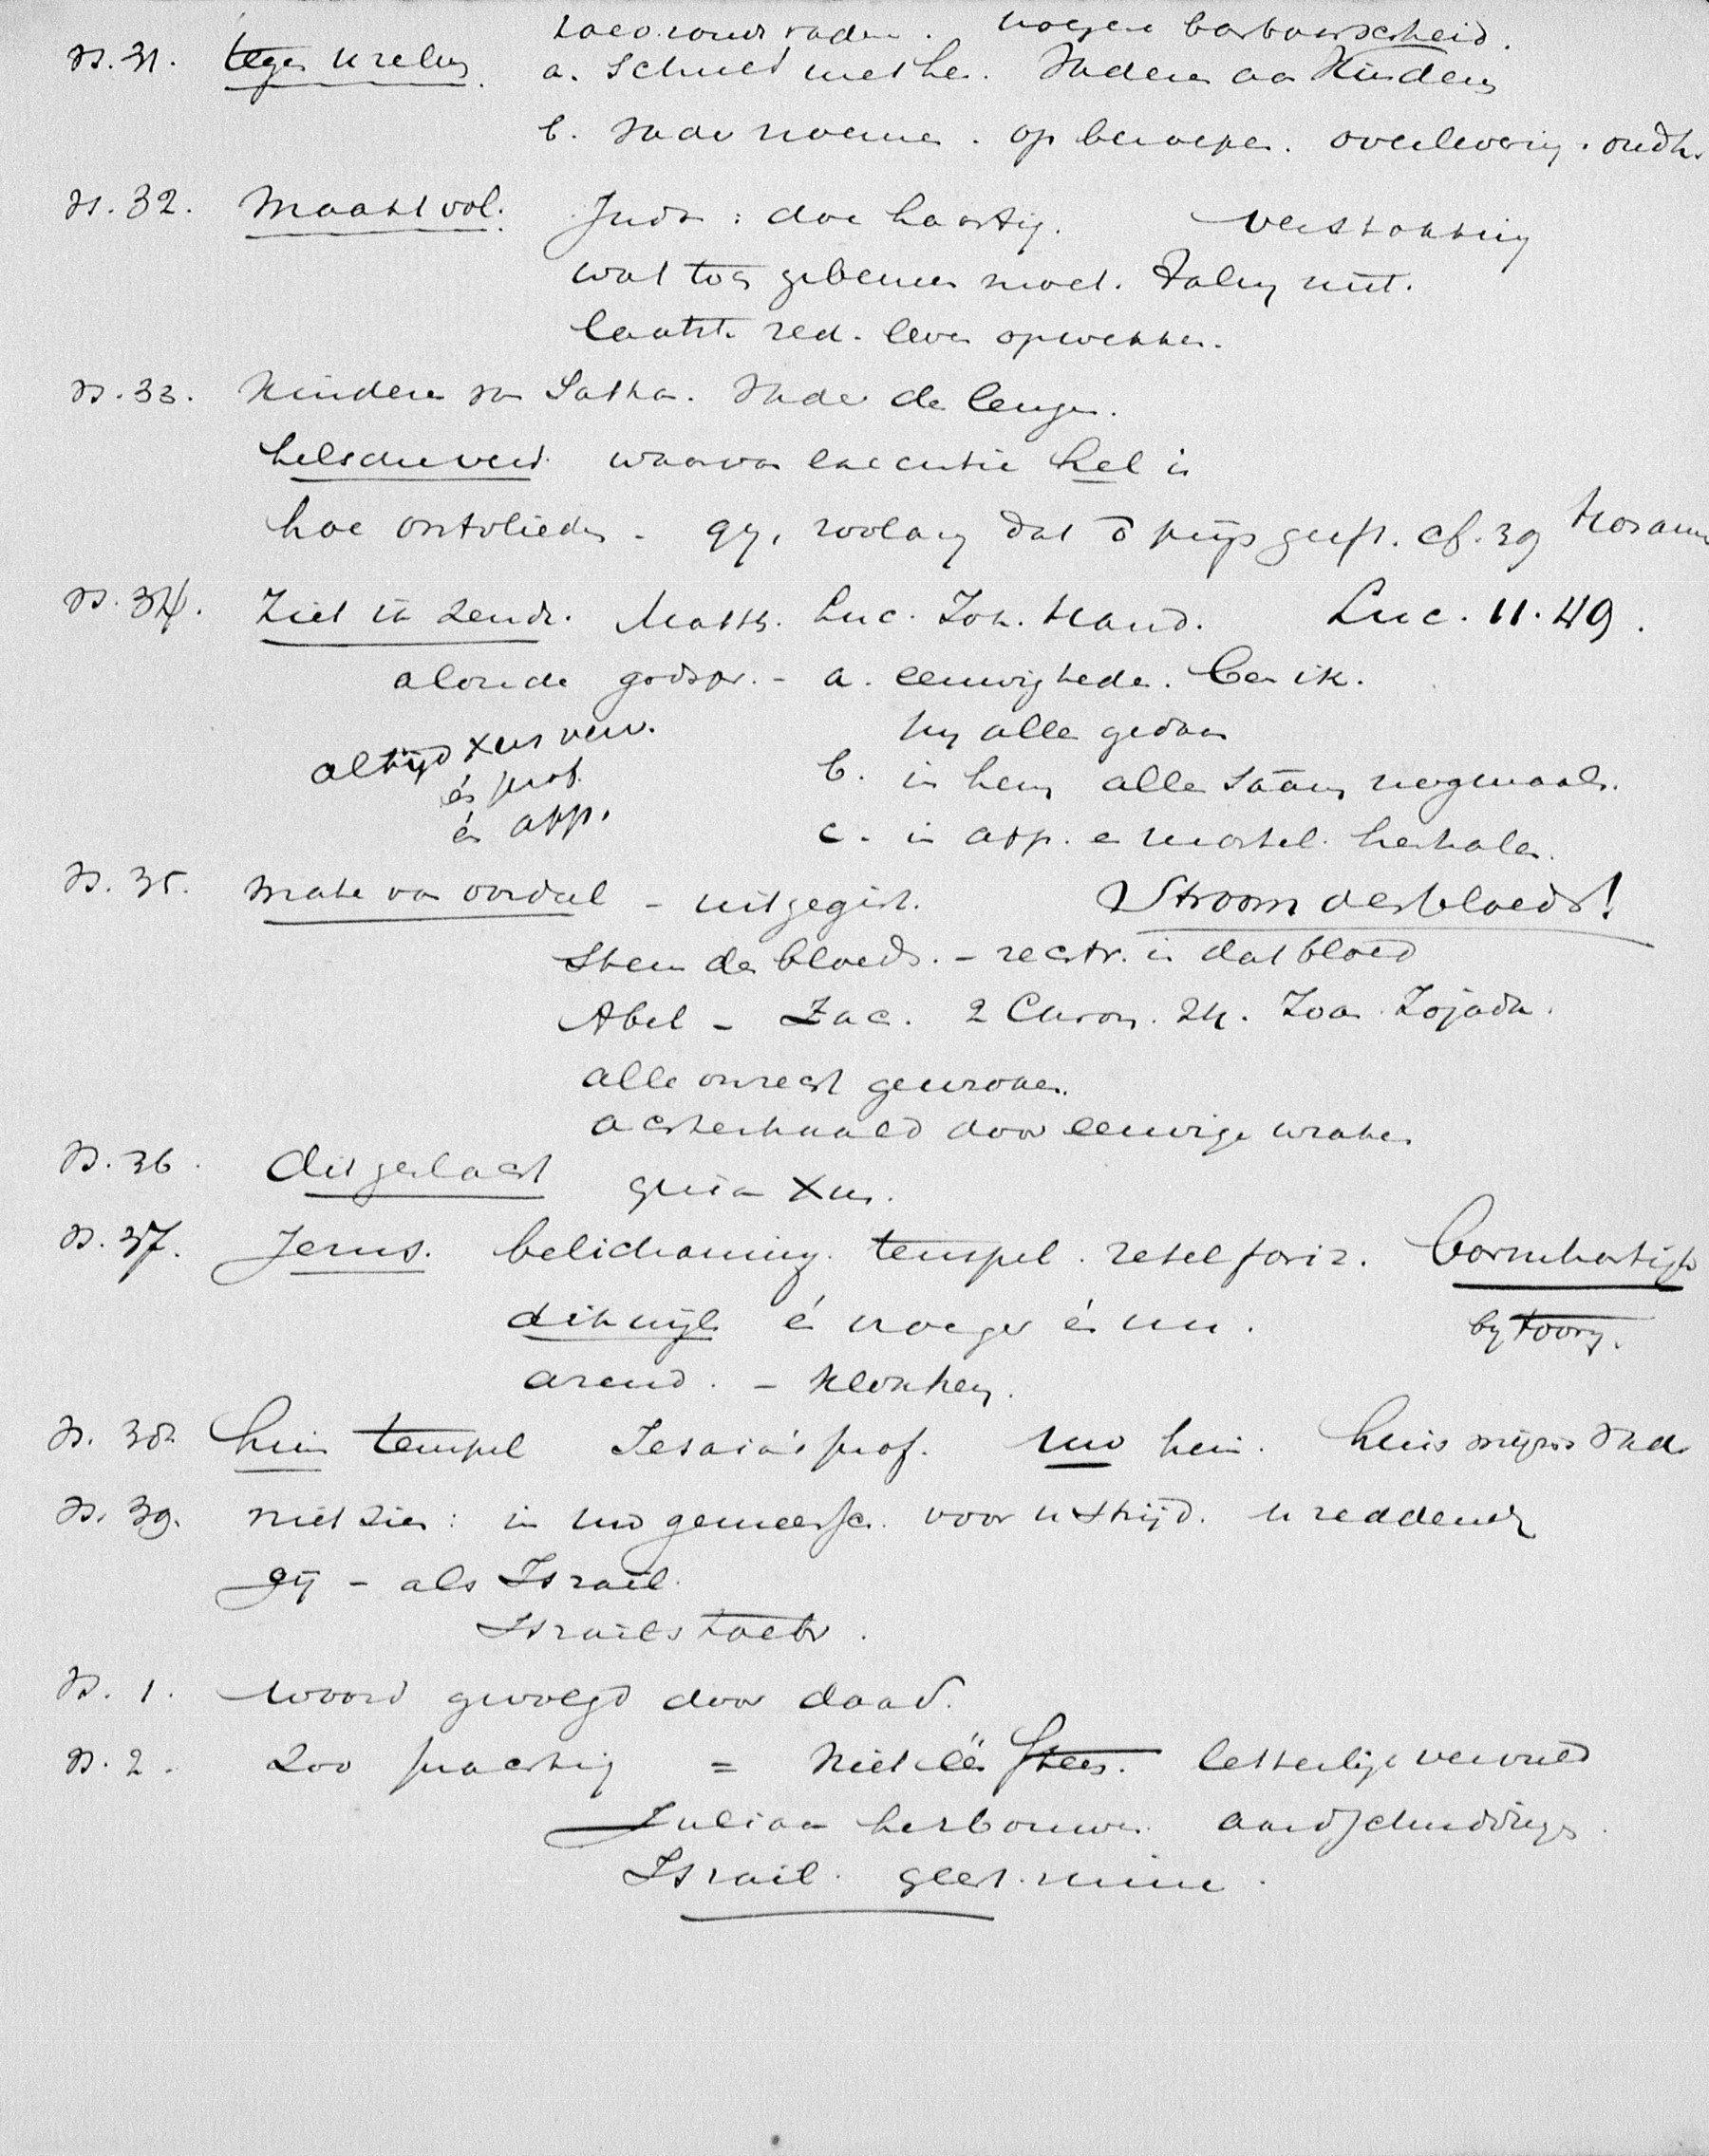 vroegere barbaarscheid.
vs. 31. tegen uzelven a. schuld met hen. Vaderen aan Kinderen
b. Vader noemen. op beroepen. overlevering. oudh.
vs. 32. Maakt vol. Judas: doe haastig. verstokking
wat toch gebeuren moet. Daling uit.
laatste red. leven opwekken.
vs. 33. Kinderen van Sathan. Vader der leugen.
helsche verd. waarvan executie hel is
hoe ontvlieden - gij, zoolang dat prijs geeft. cf. 39 Hosanna
vs. 34. Ziet ik zende. Matth. Luc. Joh. Hand. Luc. 11.49.
aloude godspr. - a. eeuwigheden. Ben ik.
hij alle gedaan
altijd Xus verw.
én prof.
én app.
b. in hem alle saam nogmaals.
c. in app. en martel. herhalen.
vs. 35. mate van oordeel - uitgegist. Stroom des bloeds!
Stem des bloeds. - recht. in dat bloed
Abel - Zac. 2 Chron. 24. Joas Jojada.
alle onrecht gewroken.
achterhaald door eeuwige wraken
vs. 36. dit geslacht Xus.
vs. 37. Jerus. belichaming. tempel. zetel fariz. barmhartigh
dikwijls én vroeger én nu. bij toorn.
arend. - klokhen.
vs. 38. huis tempel Jesaia's prof. uw huis. huis mijns Vad.
vs. 39. niet zien: in uw gemeensch. voor u strijd. u reddende
gij - als Israël.
Israëls
vs. 1. woord gevolgd door daad.
vs. 2. Zoo prachtig = Niet één steen. letterlijk vervuld
Juliaan herbouwen. aardschuddings.
Israël. geest. ruïne.